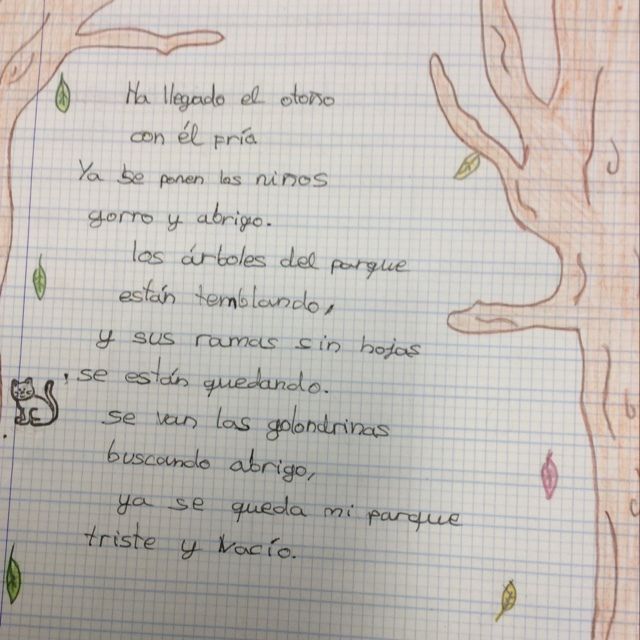 Ha llegado el otoño
con él fría
Ya se ponen los niños
gorro y abrigo.
los árboles del parque
están temblando,
y sus ramas sin hojas
se están quedando.
se van las golondrinas
buscando abrigo,
ya se queda mi parque
triste y vacío.